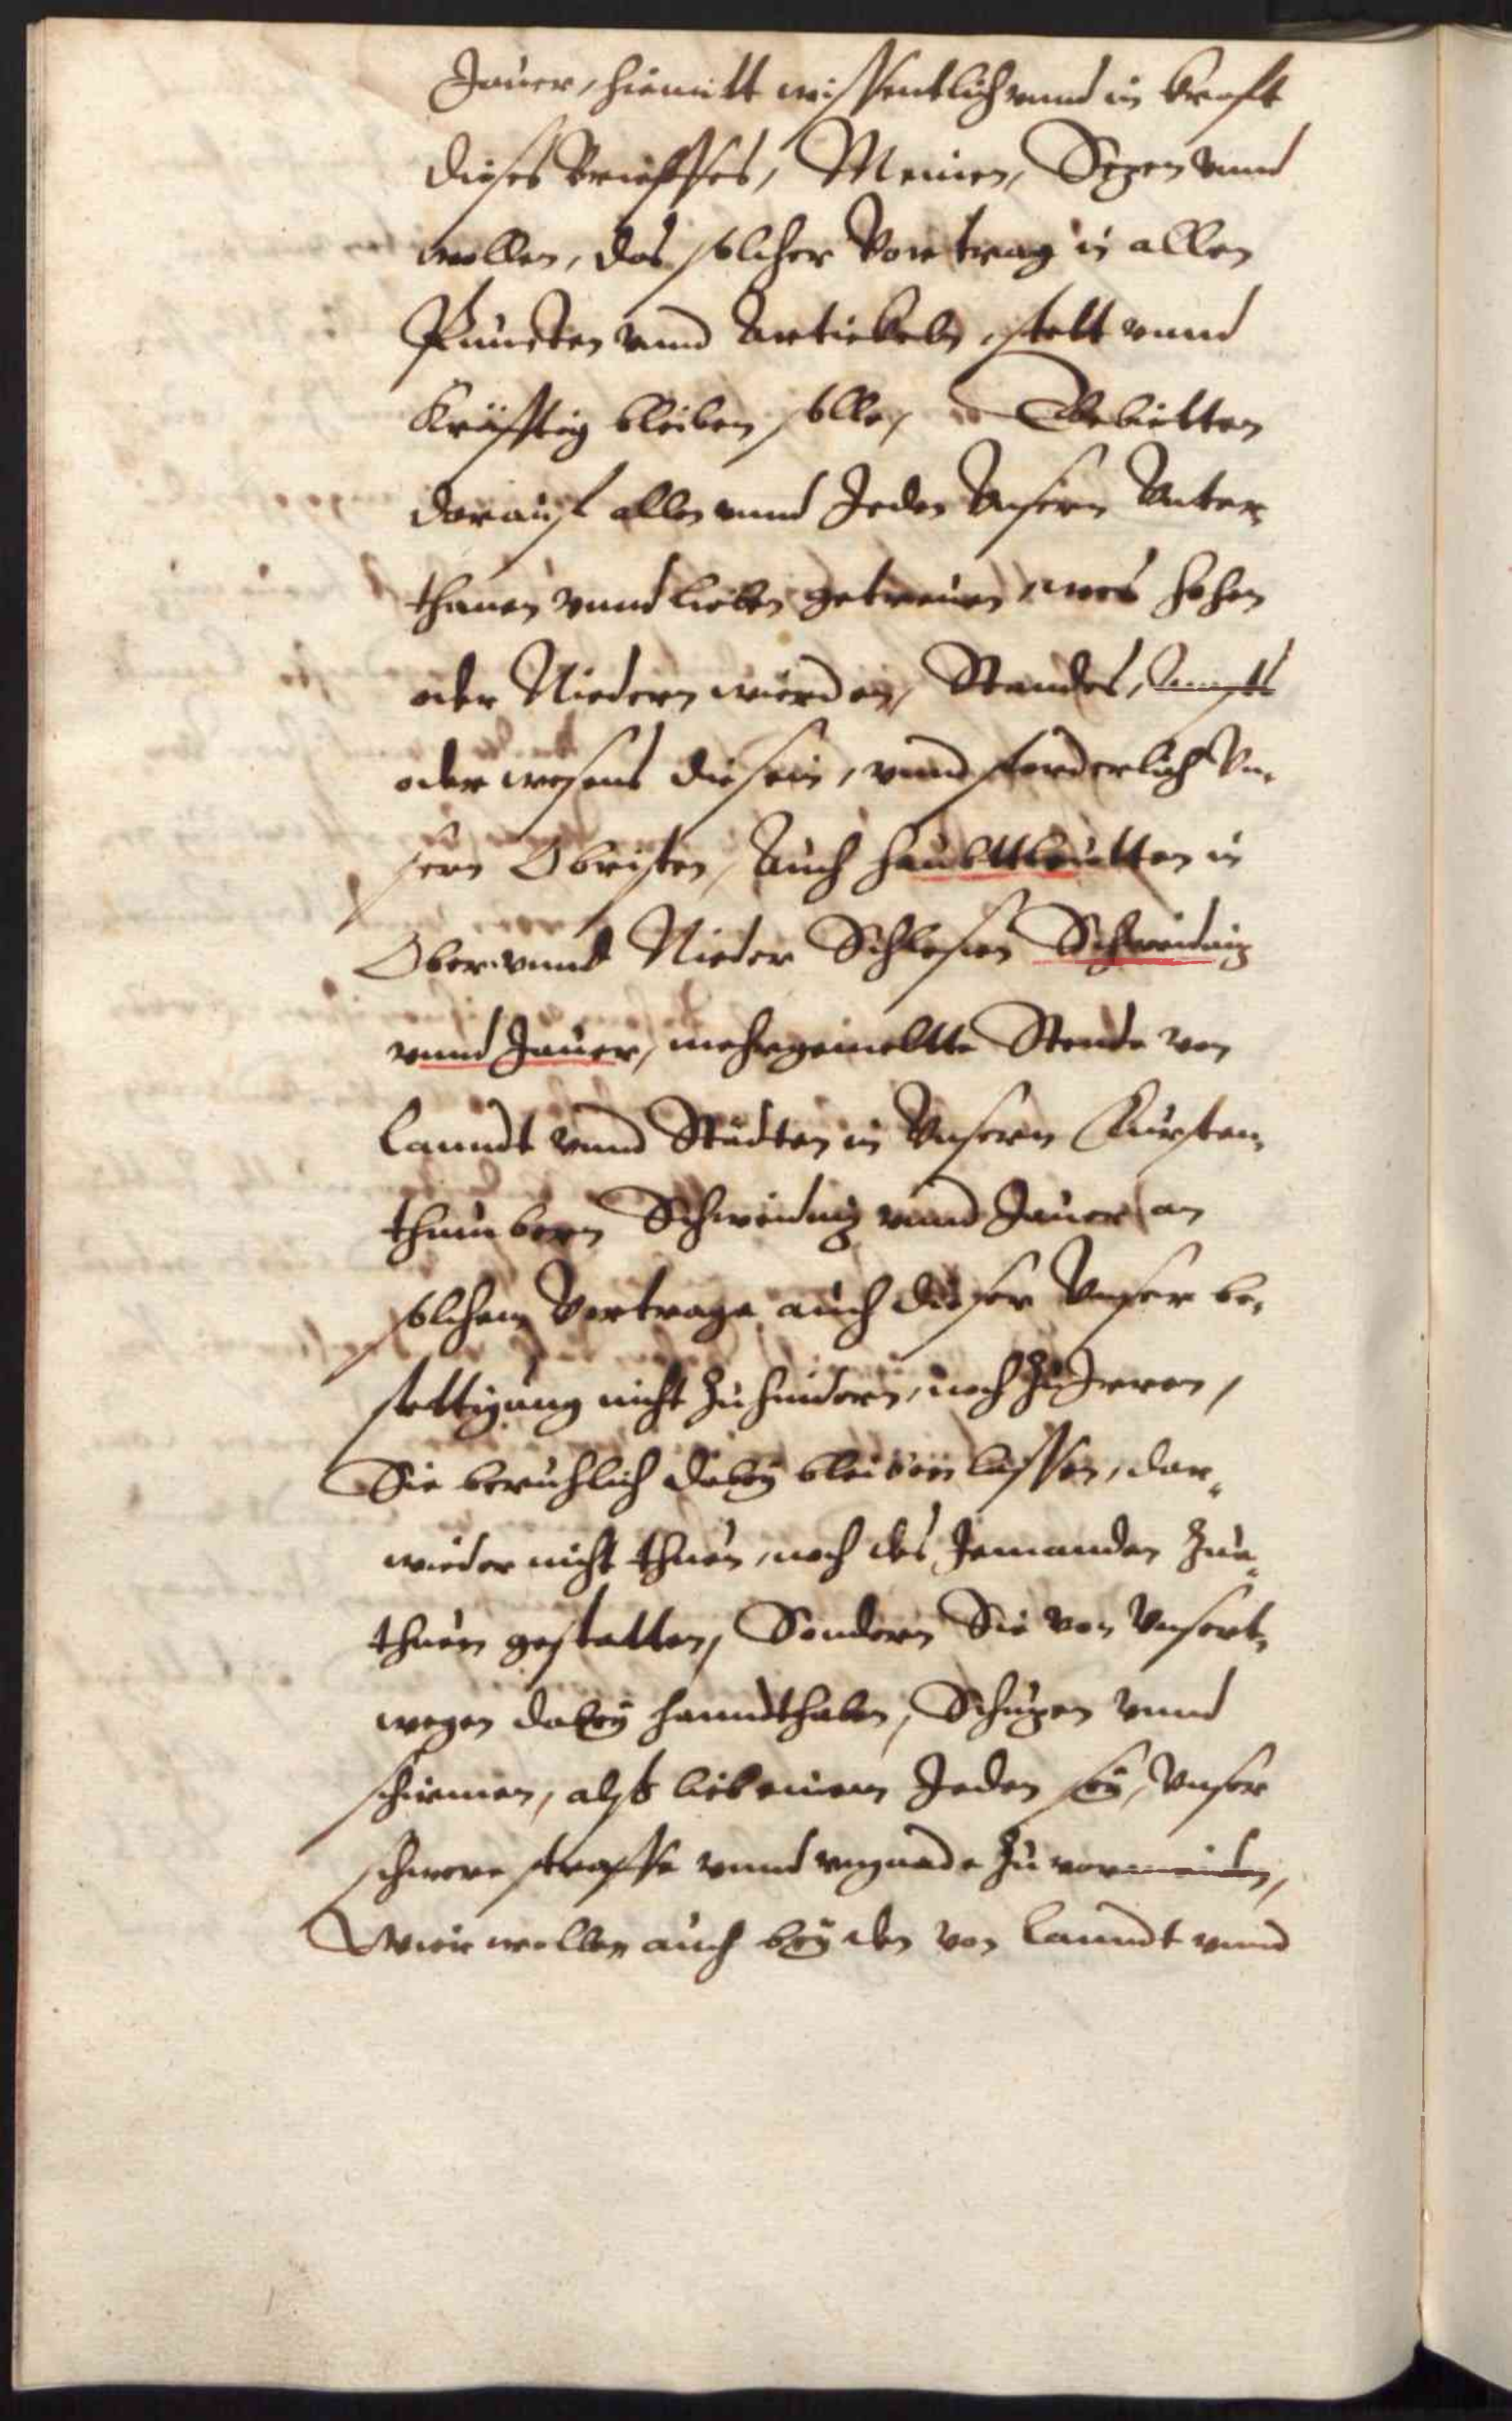 Jauer, hiemitt wissentlich vnnd in krafft
dieses Brieffes, Meinen, Sezen vnnd
wollen, das solcher Vortrag in allen
Puncten vnnd Artickeln, stett vnnd
Kräfftig bleiben solle, Gebietten
darauf allen vnnd Jeden Vnsern Vnter,
thanen vnnd lieben getreuen, was hohen
oder Niedern wierden, Standes, Ampts
oder wesens die sein, vnnd forderlich Vn,
sern Obristen, Auch Haubttleutten in
Ober vnnd Nieder Schlesien Schweidniz
vnnd Jauer, mehrgemeltte Stende von
Lanndt vnnd Städten in Vnsern Fürsten,
thumbern Schweidniz vnnd Jauer, an
solchem Vertrage auch dieser Vnser be,
stettigung nicht zu hindern, noch zu Jrren,
Sie beruhlich dabey bleiben lassen, dar,
wieder nicht thuen, noch des Jemanden zue,
thuen gestatten, Sondern Sie von Vnsert,
wegen dabey hanndthaben, Schuzen vnnd
schirmen, alß lieb einem Jeden sey, Vnser
schwere straffe vnnd vngnade zu vormeiden,
Wier wollen auch bey den von Lanndt vnnd